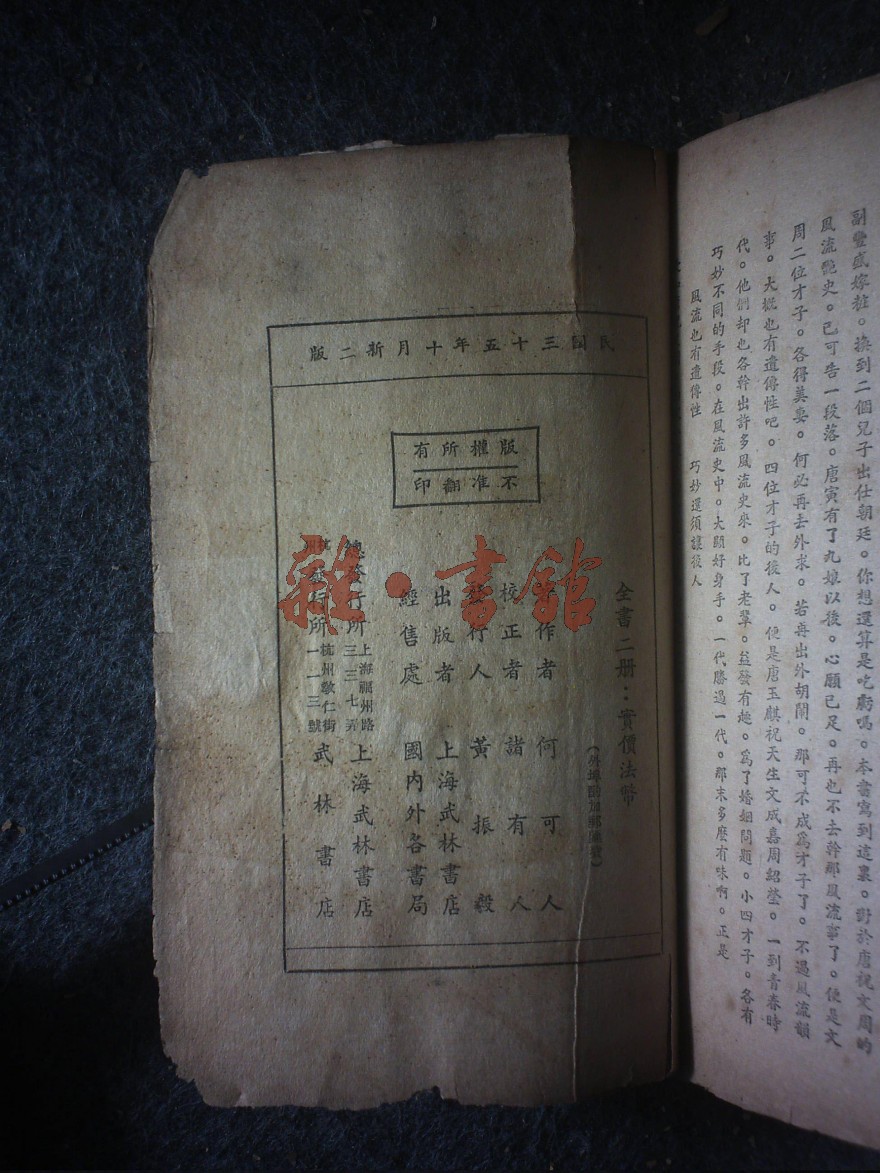 副豐盛嫁粧。換到二個兒子出仕朝廷。你想還算是吃虧嗎。本書寫到這裏。對於唐祝文周的
風流艷史。已可告一段落。唐寅有了九娘以後。心願已足。再也不去幹那風流事了。便是文
周二位才子。各得美妻。何必再去外求。若再出外胡鬧。那可不成爲才子了。不過風流韻
事。大概也有遺傳性吧。四位才子的後人。便是唐玉麒祝天生文成嘉周紹瑩。一到青春時
代。他們却也各幹出許多風流史來。比了老輩。益發有趣。爲了婚姻問題。小四才子。各有
巧妙不同的手段。在風流史中。大顯好身手。一代勝過一代。那末多麼有味啊。正是
風流也有遺傳性　巧妙還須讓後人
民國三十五年十月新二版
版權所有
不准翻印
全書二册：實價法幣
（外埠酌加郵匯費）
作者 何可人
校正者 諸有人
行人 黃振毅
出版者 上海武林書店
經售處 國內外各書局
總發行所 上海福州路三三七弄 上海武林書店
發行所 杭州敎仁街一二三號 武林書店
雜·書館